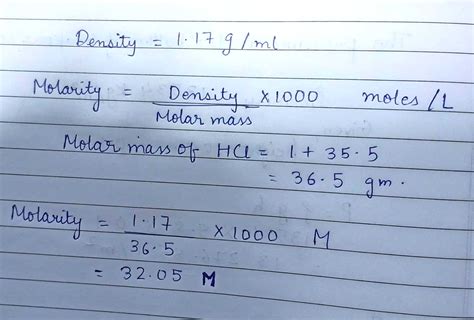 Density = 1.17 g/ml
Molarity = Density/Molar mass X1000 moles/L
Molar mass of HCl = 1 + 35.5
= 36.5 gm.
Molarity = 1.17/36.5 X 1000 M
= 32.05 M